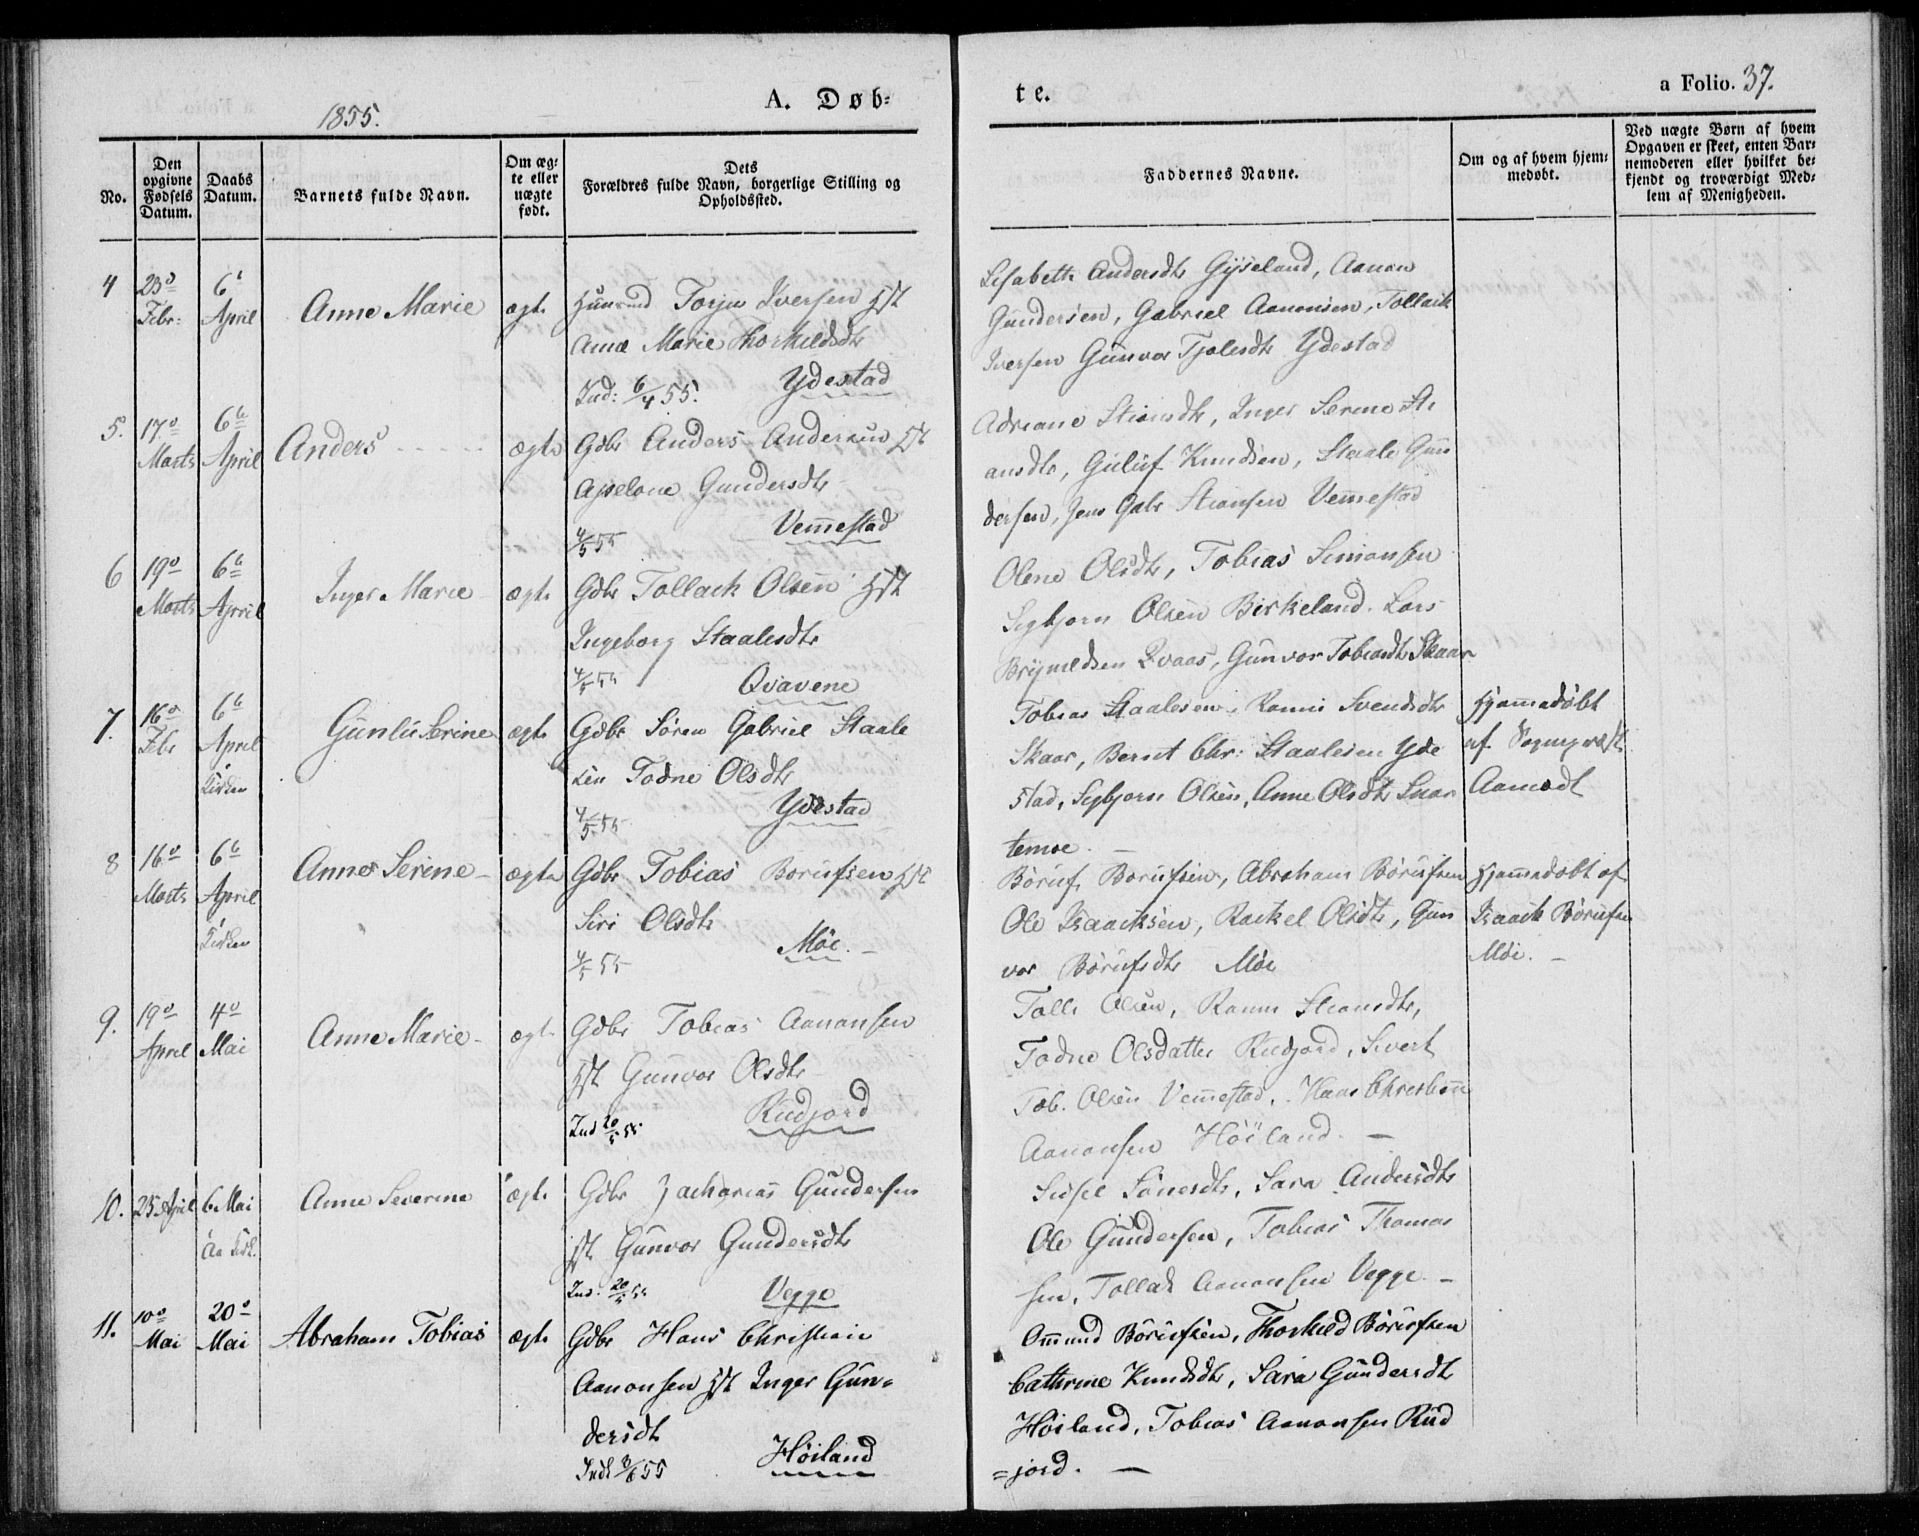 1855.
A. Døb-
te.
a Folio. 37.
No.
Den opgivne Fødsels Datum.
Daabs Datum.
Barnets fulde Navn.
Om ægte eller nægte født.
Dets Forældres fulde Navn, borgerlige Stilling og Opholdssted.
Faddernes Navne.
Om og af hvem hjemmedøbt.
Ved nægte Børn af hvem Opgaven er skeet, enten Barnemoderen eller hvilket bekjendt og troværdigt Medlem af Menigheden.
4
23de Febr:
6te April
Anne Marie
ægte
Huusmd Torju Iversen Hst
Anne Marie Thorkildsdtr
Ind: 6/4 55. Ydestad
Lisabeth Andersdtr Gyseland, Aanon
Gundersen, Gabriel Aanonsen, Tollack
Iversen Gunvor Tjølesdtr Ydestad
5.
17de Marts
6te April
Anders
ægte
Gdbr Anders Andersen Hst
Apselone Gundersdtr
4/5 55 Vemestad
Adriane Stiansdtr, Inger Serine Sti
ansdtr, Guluf Knudsen, Staale Gun
dersen, Jens Gabr Stiansen Vemestad
6
19de Marts
6te April
Inger Marie
ægte
Gdbr Tollack Olsen Hst
Ingeborg Staalesdtr
4/5 55 Qvavene
Olene Olsdtr, Tobias Simonsen
Segbjørn Olsen Birkeland. Lars
Brynildsen Qvaas, Gunvor Tobiasdtr Skaar
7.
16de Febr
6te April i Kirken
Gunlu Serine
ægte
Gdbr Søren Gabriel Staale
sen Todne Olsdtr
4/5 55 Ydestad
Tobias Staalesen, Ranni Svendsdtr
Skaar, Bernt Chr: Staalesen Yde
stad, Segbjørn Olsen, Anne Olsdtr Snar
temoe.
Hjemmedøbt
af Sognepræst
Aamodt
8
16de Marts
6te April i Kirken
Anne Serine
ægte
Gdbr Tobias Børufsen Hst
Siri Olsdtr
4/5 55 Møe.
Børuf Børufsen, Abraham Børufsen
Ole Isaacksen, Rackel Olsdtr, Gun
vor Børufsdtr Møe
Hjemmedøbt af
Isaack Børufsen
Møi.
9.
19de April
4de Mai
Anne Marie
ægte
Gdbr Tobias Aanonsen
Hst Gunvor Olsdtr
Ind 20/5 55 Rudjord
Talle Olsen, Ranni Stiansdtr,
Todne Olsdatter Rudjord, Sivert
Tob. Olsen Vemestad, Hans Christian
Aanonsen Høiland.
10.
25 April
6 Mai
Aa Kirk.
Anne Severine
ægte
Gdbr Zacharias Gundersen
Hst Gunvor Gundersdtr
Ind: 20/5 55 Vegge
Sidsel Sønesdtr, Sara Andersdtr
Ole Gundersen, Tobias Thomas
sen, Tollak Aanonsen Vegge.
11.
10de Mai
20de Mai
Abraham Tobias
ægte
Gdbr Hans Christian
Aanonsen Hst Inger Gun-
dersdtr
Indt 3/6 55 Høiland
Ommund Børufsen, Thorkild Børufsen
Cathrine Knudsdtr, Sara Gundersdtr
Høiland, Tobias Aanonsen Rud
=jord.